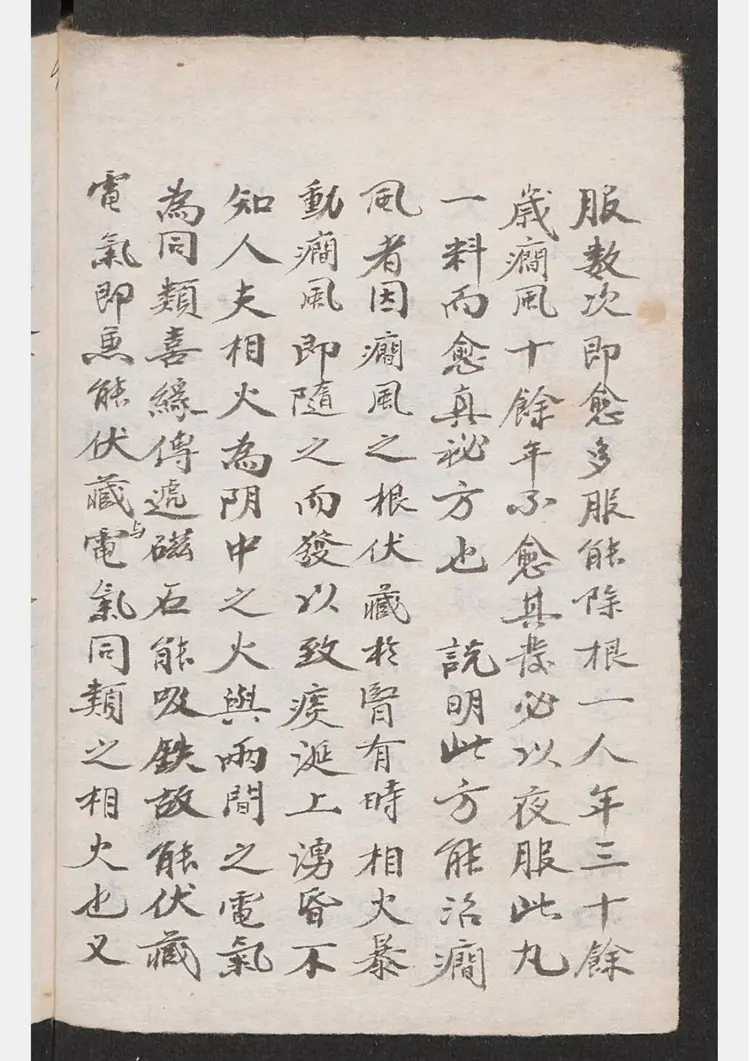 服数次即愈多服能除根一人年三十餘
歲癇風十餘年不愈其發必以夜服此丸
一料而愈真祕方也 説明此方能治癇
風者因癇風之根伏藏於腎有時相火暴
動癇風即隨之而發以致痰涎上湧昏不
知人夫相火為阴中之火與兩間之電氣
為同類喜緣傳遞磁石能吸鉄故能伏藏
電氣即兼能伏藏與電氣同類之相火也又